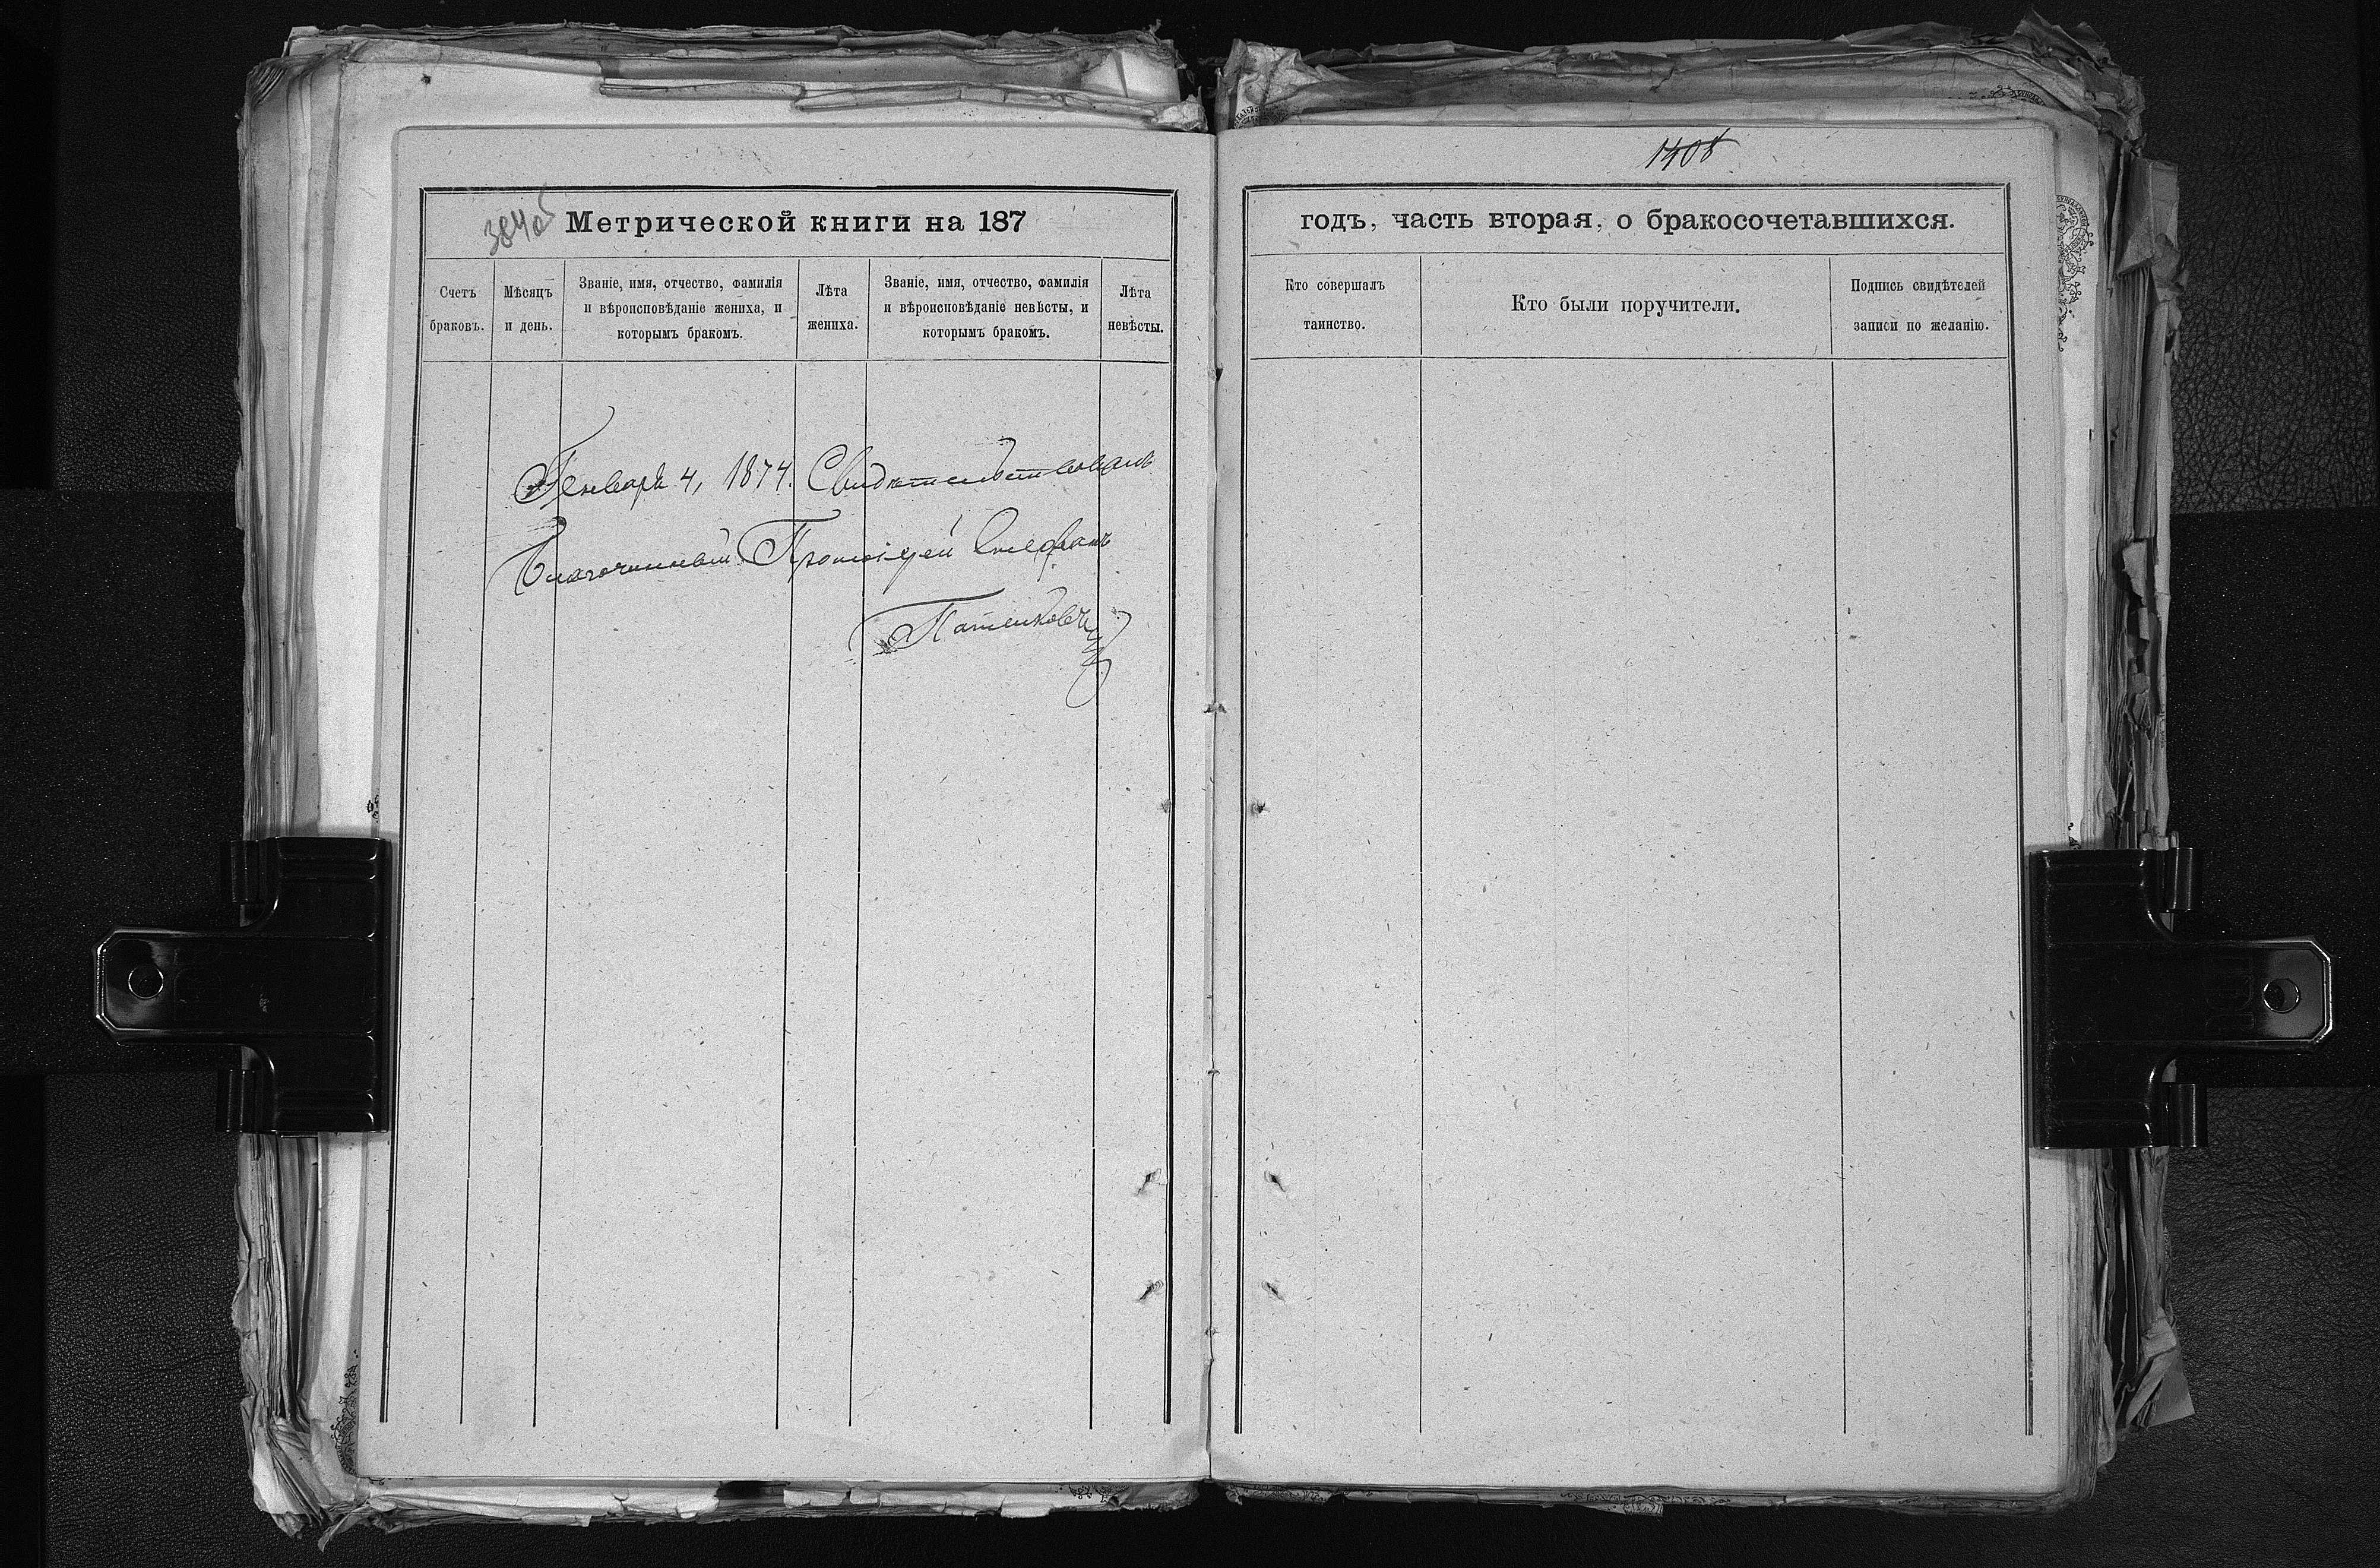 384об
Метрической книги на 187
Счетъ браковъ.
Мѣсяцъ и день.
Званіе, имя, отчество, фамилія и вѣроисповѣданіе жениха, и которымъ бракомъ.
Лѣта жениха.
Званіе, имя, отчество, фамилія и вѣроисповѣданіе невѣсты, и которымъ бракомъ.
Лѣта невѣсты.
Генваря 4, 1874. Свидѣтельствовалъ
Благочинный Протоіерей Стефанъ
1408
годъ, часть вторая, о бракосочетавшихся.
Кто совершалъ таинство.
Кто были поручители.
Подпись свидѣтелей записи по желанію.